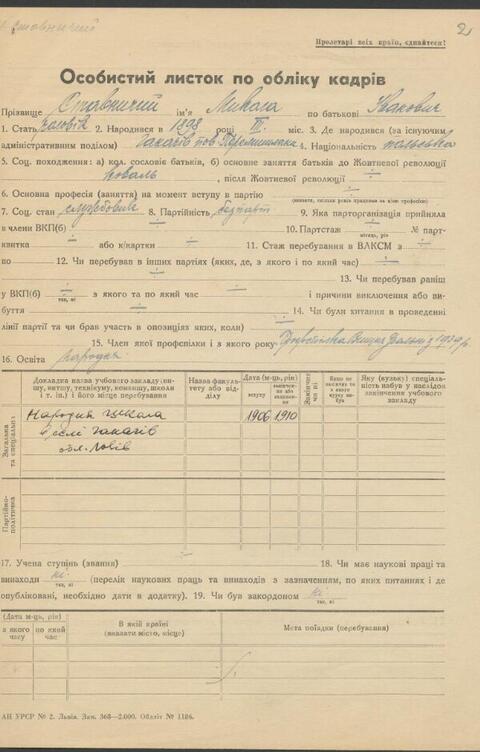 Ставничий
2
Пролетарі всіх країн, єднайтеся!
Особистий листок по обліку кадрів
Прізвище Ставничий ім'я Микола по батькові Іванович
1. Стать чоловік 2. Народився в 1898 році III міс. 3. Де народився (за існуючим
адміністративним поділом) Гамаків пов. Перемишляни 4. Національність польська
5. Соц. походження: а) кол. сословіє батьків, б) основне заняття батьків до Жовтневої революції
коваль, після Жовтневої революції ÷
6. Основна професія (заняття) на момент вступу в партію ÷
(вказати, скільки років працював за цією професією)
7. Соц. стан службовик 8. Партійність безпарт. 9. Яка парторганізація прийняла
в члени ВКП(б) ÷ 10. Партстаж ÷ № парт-
місяць, рік
квитка ÷ або к/картки ÷ 11. Стаж перебування в ВЛКСМ з ÷
по — 12. Чи перебував в інших партіях (яких, де, з якого і по який час) ÷
13. Чи перебував раніш
у ВКП(б) ÷ з якого та по який час ÷ і причини виключення або ви-
так, ні
буття 14. Чи були хитання в проведенні
лінії партії та чи брав участь в опозиціях яких, коли) ÷
15. Член якої профспілки і з якого року
16. Освіта народня
Докладна назва учбового закладу (ви-
шу, витшу, технікуму, комвишу, школи
і т. ін.) і його місце перебування
Назва факуль-
тету або від-
ділу
Дата (м-ць, рік)
вступу
закінчен-
ня або
залишен-
ня
Закінчив
чи ні
Якщо не
закінчив то
з якого
курсу ви-
був
Яку (вузьку) спеціаль-
ність набув у наслідок
закінчення учбового
закладу
Загальна
та спеціальна
Народна школа 1906 1910
в селі Гамаків
обл. Львів
Партійно-
політична
17. Учена ступінь (звання) ÷ 18. Чи має наукові праці та
винаходи ні (перелік наукових праць та винаходів з зазначенням, по яких питаннях і де
так, ні
опубліковані, необхідно дати в додатку). 19. Чи був закордоном ні
так, ні
Дата (м-ць, рік)
з якого
часу
по який
час
В якій країні
(вказати місто, місце)
Мета поїздки (перебування)
АН УРСР № 2. Львів. Зам. 368—2.000. Обліт № 1186.